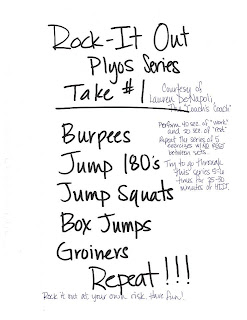 Rock-It Out
Plyos Series
Take #1
Courtesy of
Lauren DeNapoli,
The "Coach's Coach"
Perform 40 sec of "work"
and 20 sec of "rest"
Repeat this series of 5
exercises w/ NO REST
between sets.
Try to go through
this series 5-6
times for 25-30
minutes of HIIT.
Burpees
Jump 180's
Jump Squats
Box Jumps
Groiners
Repeat!!!
Rock it out at your own risk. Have fun!